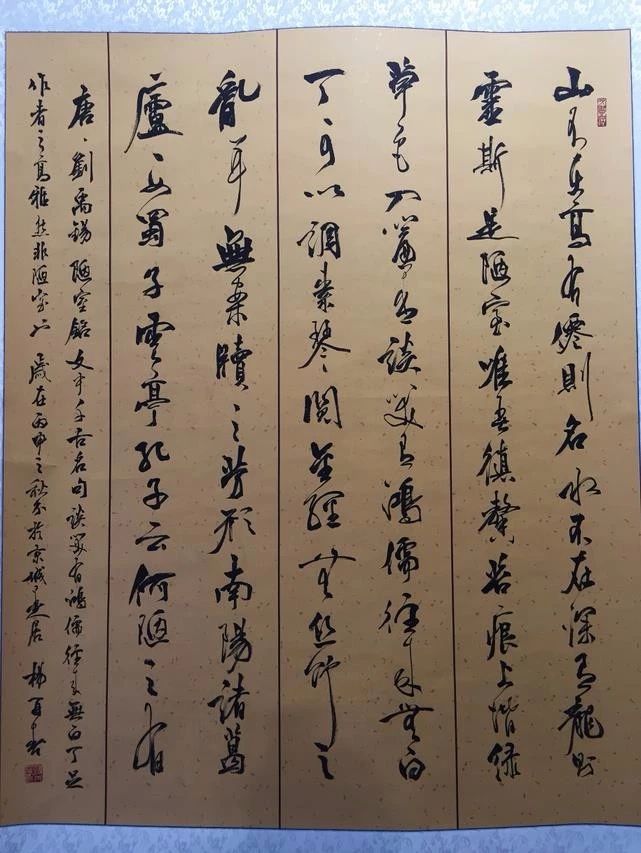 山不在高有僊則名水不在深有龍則
靈斯是陋室唯吾德馨苔痕上階綠
草色入簾青談笑有鴻儒往来無白
丁可以調素琴閱金經無絲竹之
亂耳無案牘之勞形南陽諸葛
廬西蜀子雲亭孔子云何陋之有
唐劉禹錫陋室銘文中千古名句談笑有鴻儒往来無白丁足
作者之高雅然非陋室 歲在丙申之秋分於京城 居 楊